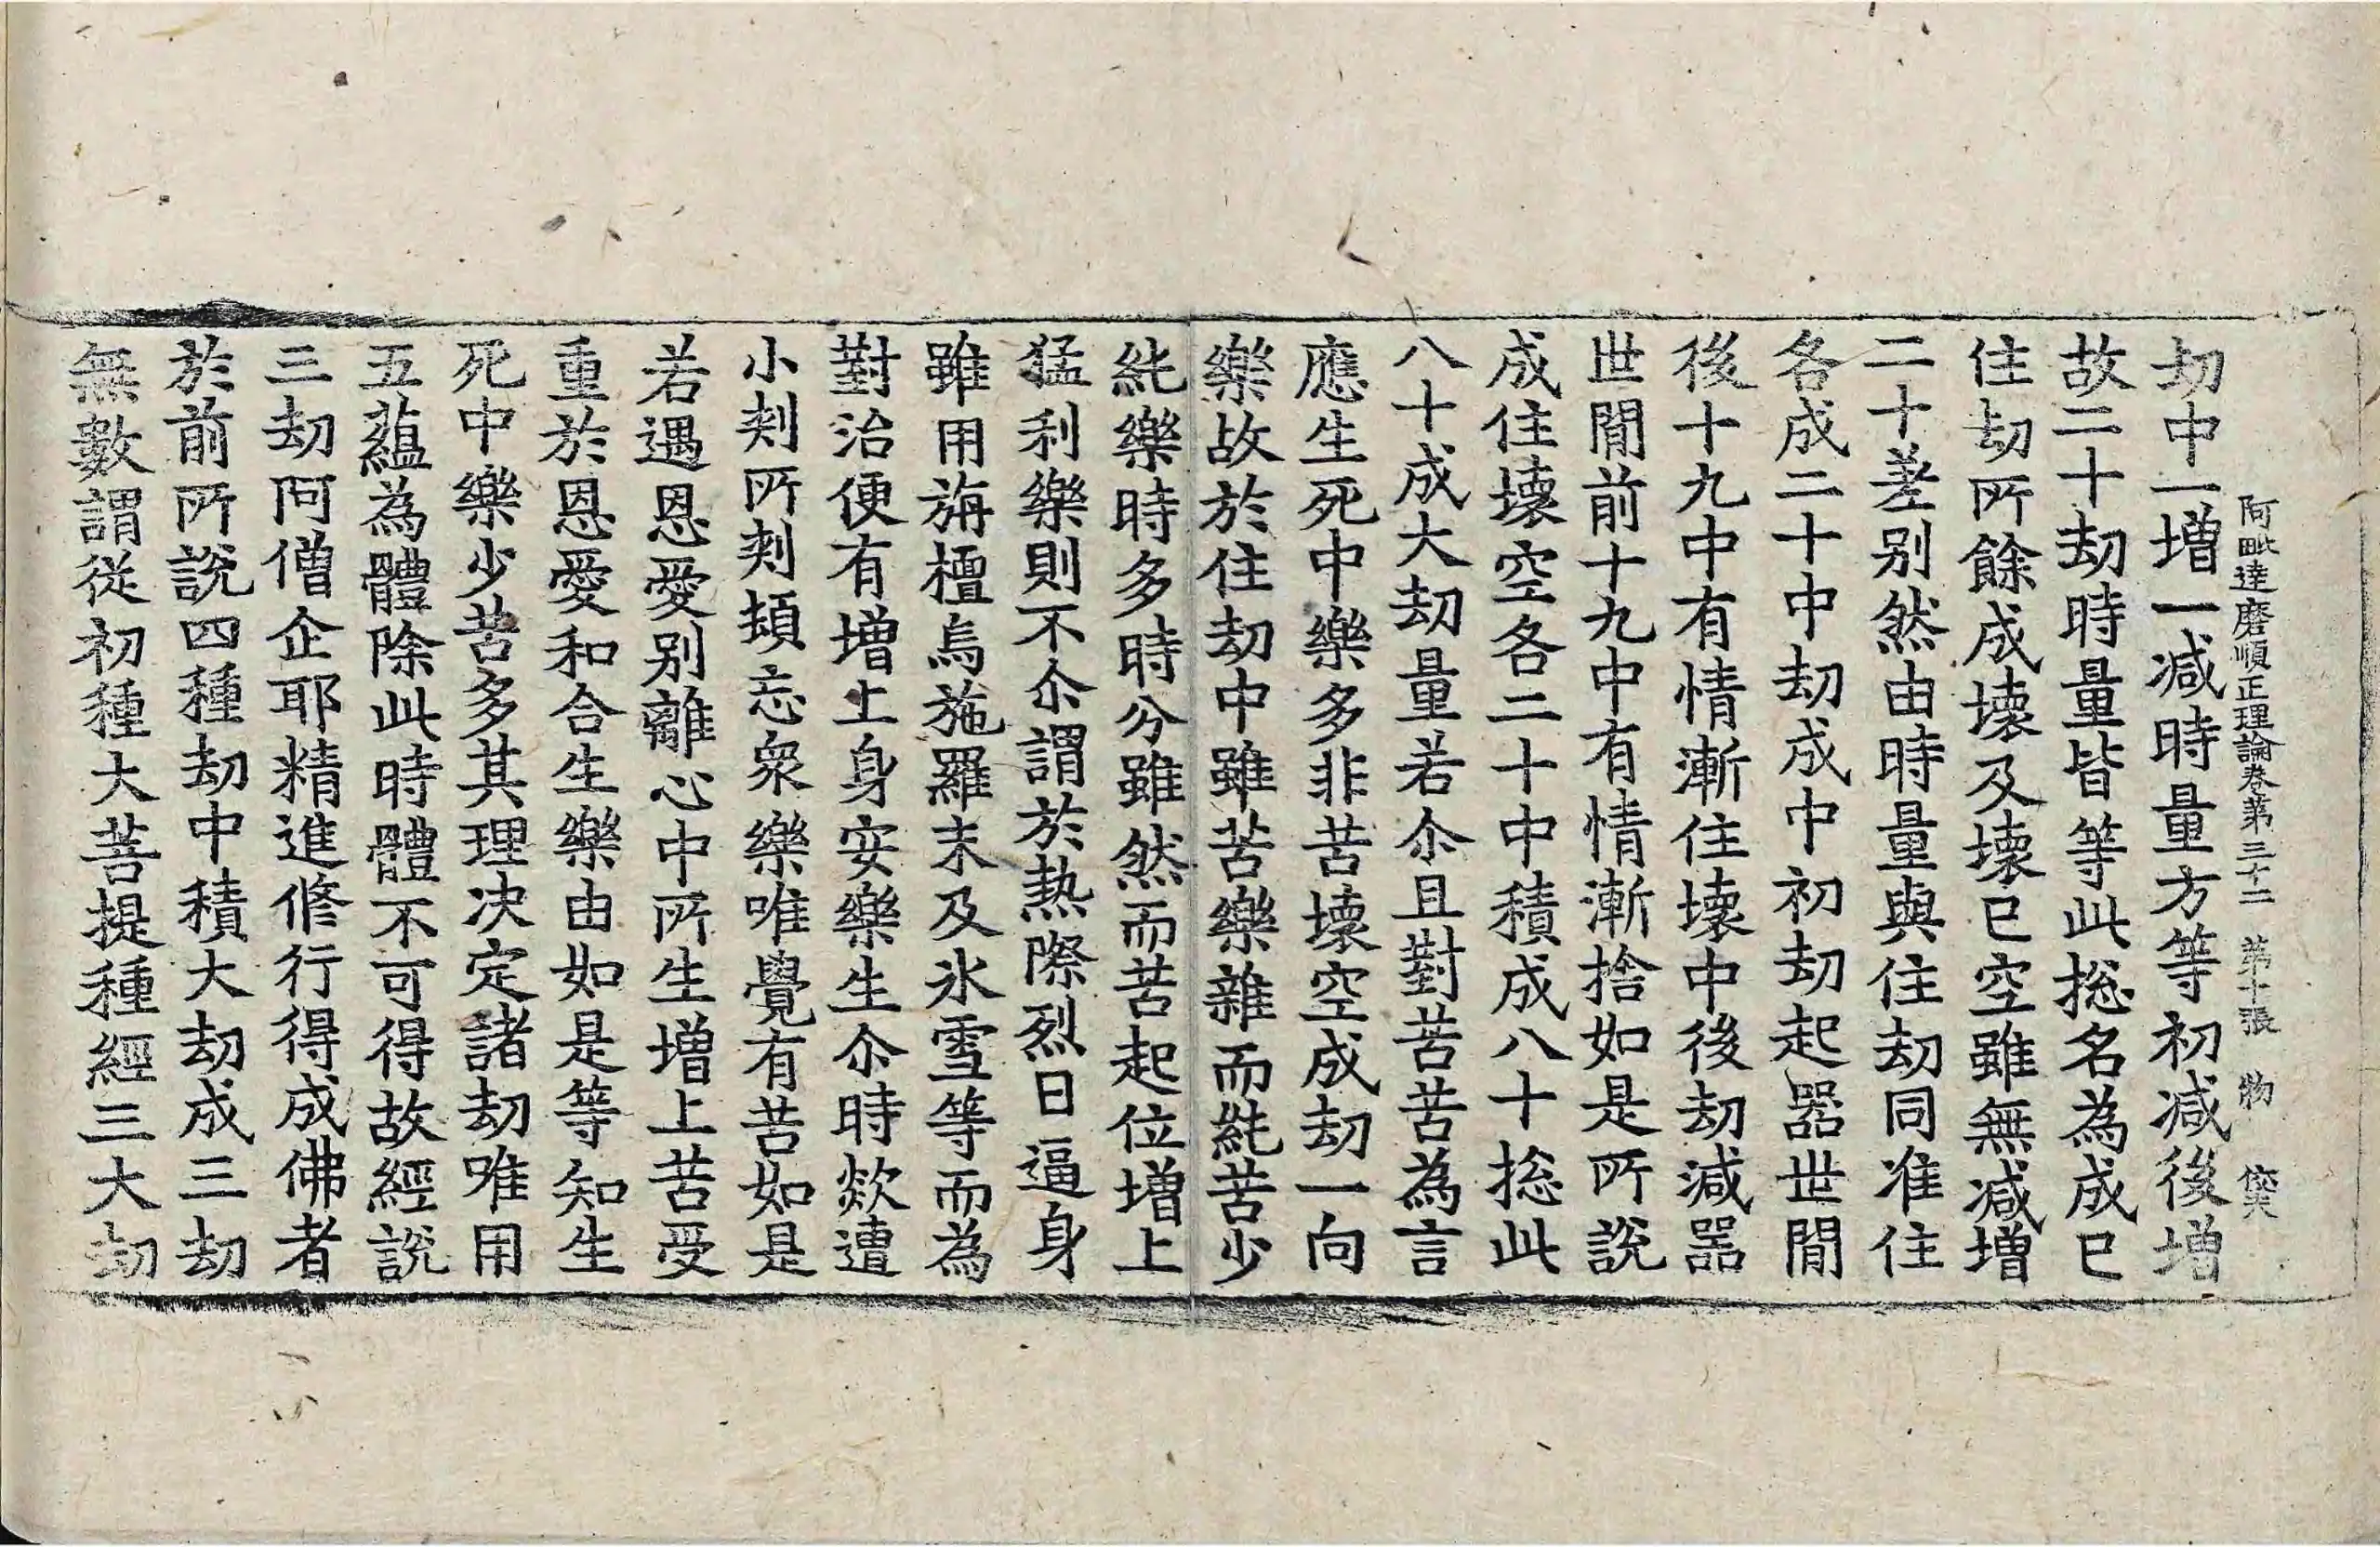 阿毗達磨順正理論卷第三十二 第十張 物
劫中一增一減時量方等初減後增
故二十劫時量皆等此揔名為成已
住劫所餘成壞及壞已空雖無減增
二十差別然由時量與住劫同准住
各成二十中劫成中初劫起器世間
後十九中有情漸住壞中後劫減器
世間前十九中有情漸捨如是所說
成住壞空各二十中積成八十揔此
八十成大劫量若尒且對苦苦為言
應生死中樂多非苦壞空成劫一向
樂故於住劫中雖苦樂雜而純苦少
純樂時多時分雖然而苦起位增上
猛利樂則不尒謂於熱際烈日逼身
雖用旃檀烏施羅末及氷雪等而為
對治便有增上身安樂生尒時欻遭
小刺所刺頓忘眾樂唯覺有苦如是
若遇恩愛別離心中所生增上苦受
重於恩愛和合生樂由如是等知生
死中樂少苦多其理決定諸劫唯用
五蘊為體除此時體不可得故經說
三劫阿僧企耶精進修行得成佛者
於前所說四種劫中積大劫成三劫
無數謂從初種大菩提種經三大劫